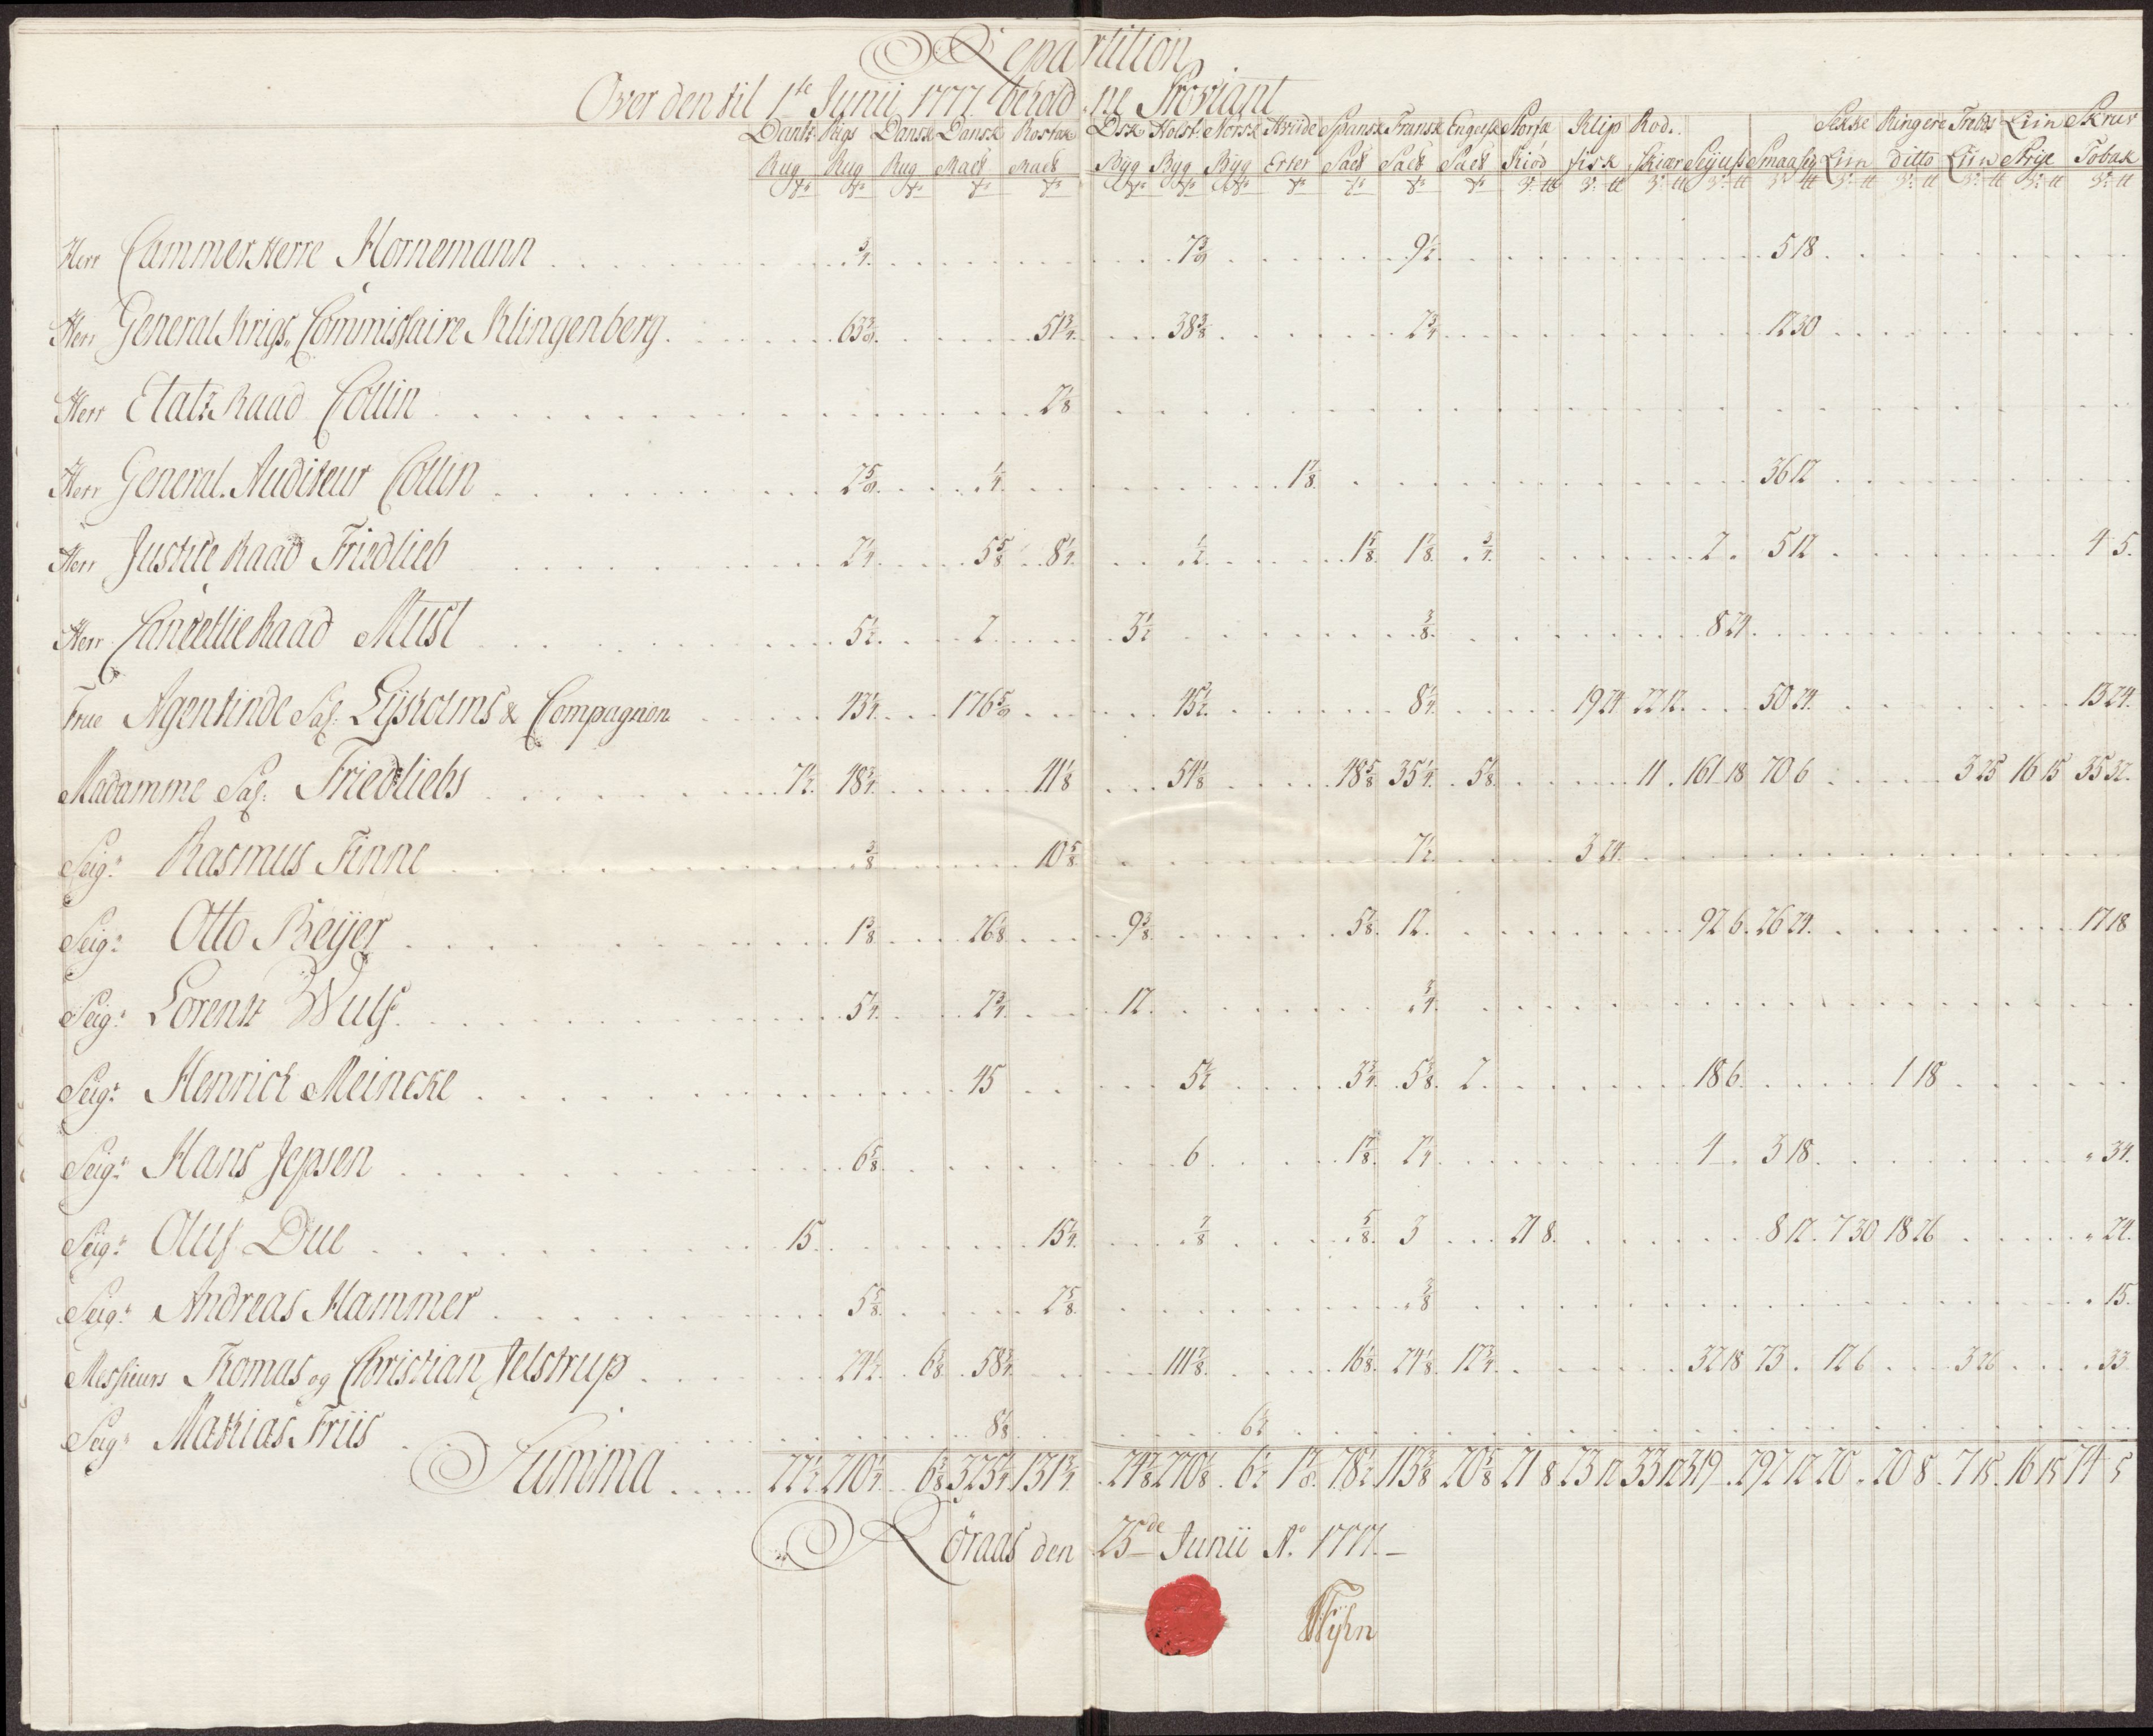 Repartition
Over den til 1ste Junii 1777. behold.ne Proviant
Dantz Rigs Dansk Dansk Rostok Dsk Holst. Norsk Hviide Spansk Fransk Engelsk Storfæ Klip Rod. Ringere Liin Skruv
Rug Rug Rug Malt Malt Byg Byg Byg Erter Salt Salt Salt Kiød fisk Skiær Seyufs Smaasey Liin ditto Liin Strije Tobak
Herr Cammerherre Hornemann 3/4. 9 1/2 5 18
Herr General Krigs. Commissaire Klingenberg. 51 3/4. 38 3/8 2 3/4 12 30
Herr Etatz Raad Collin 2 1/8
Herr General. Auditeur Collin 1/4. 1 1/8. 36 12
Herr Justice Raad Friedlieb 2 1/4. 5 5/8 8 1/4. 1/2. 1 5/8. 1 1/8. 3/4. 2. 5 12 4 5.
Herr Cancellie Raad Must 5 1/2. 2 3 1/2 3/8. 8 24.
Frue Agentinde Sal: Lysholms & Compagnon 43 1/4. 176 45 1/2. 8 1/4. 19 24 22 12. 50 24. 13 24.
Madamme Sal: Friedliebs 7 1/2. 48 3/4. 41 1/8 54 1/8 48 5/8 35 1/4. 5 1/8. 11. 161 18 70 6 3 25 16 15 35 32.
Seigr. Rasmus Finne 3/8 10 5/8 7 1/2. 3 24.
Seigr. Otto Beyer 1 3/8 26 1/8 9 3/8. 5 1/8. 12. 92 6. 26 24. 17 18
Seigr. Lorentz Wulf. 5 1/4. 2 3/4. 12. 3/4.
Seigr. Henrich Meincke 45 5 1/2 3 3/4. 5 3/8. 2 18 6. 1 18
Seigr. Hans Jepsen 6 5/8. 6 1 7/8. 2 1/4 4. 3 18. 34.
Seigr. Oluf Due 15. 15 1/4. 7/8 5/8. 3 21 8. 8 12. 7 30 18 26 24.
Seigr. Andreas Hammer 5 5/8. 2 5/8. 3/8 15.
Messieurs Tomas og Christian Jelstrup 24 1/2. 6 3/8. 58 3/4. 111 3/8. 16 1/8. 24 1/8. 12 3/4. 32 18 73. 12 6 3 26 33
Seigr. Mathias Friis 8 1/8 6 1/2
Summa 22 1/2. 210 1/4. 6 3/8 325 1/4. 131 3/4. 24 7/8 270 1/8. 6 1/2 1 1/8. 78 1/2. 113 3/8 20 5/8 21 8 23 12 33 12 319. 292 12 20. 20 8. 7 15. 16 15 74 5
Röraas den 25de Junii Ao. 1777.